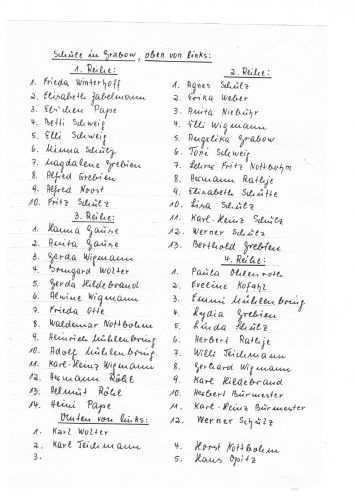 Schule in Grabow, oben von links:
1. Reihe:
1. Frieda Winterhoff
2. Elisabeth Zabelmann
3. Elschen Pape
4. Betti Schweig
5. Elli Schweig
6. Minna Schulz
7. Magdalene Grebien
8. Alfred Grebien
9. Alfred Noost
10. Fritz Schulz
2. Reihe:
1. Agnes Schulz
2. Erika Weber
3. Anita Niebuhr
4. Elli Wigmann
5. Angelika Grabow
6. Toni Schweig
7. Lehrer Fritz Nottbohm
8. Hermann Rathje
9. Elisabeth Schütte
10. Lisa Schulz
11. Karl-Heinz Schulz
12. Werner Schulz
13. Berthold Grebien
3. Reihe:
1. Hanna Gause
2. Anita Gause
3. Gerda Wigmann
4. Irmgard Wolter
5. Gerda Hildebrand
6. Alwine Wigmann
7. Frieda Otte
8. Waldemar Nottbohm
9. Heinrich Mühlenbring
10. Adolf Mühlenbring
11. Karl-Heinz Wigmann
12. Hermann Röhl
13. Helmut Röhl
14. Heini Pape
4. Reihe:
1. Paula Ohlenroth
2. Eveline Kofahl
3. Emmi Mühlenbring
4. Lydia Grebien
5. Linda Schulz
6. Herbert Rathje
7. Willi Teichmann
8. Gerhard Wigmann
9. Karl Hildebrand
10. Herbert Burmester
11. Karl-Heinz Burmester
12. Werner Schulz
Unten von links:
1. Karl Wolter
2. Karl Teichmann
3.
4. Horst Nottbohm
5. Hans Opitz